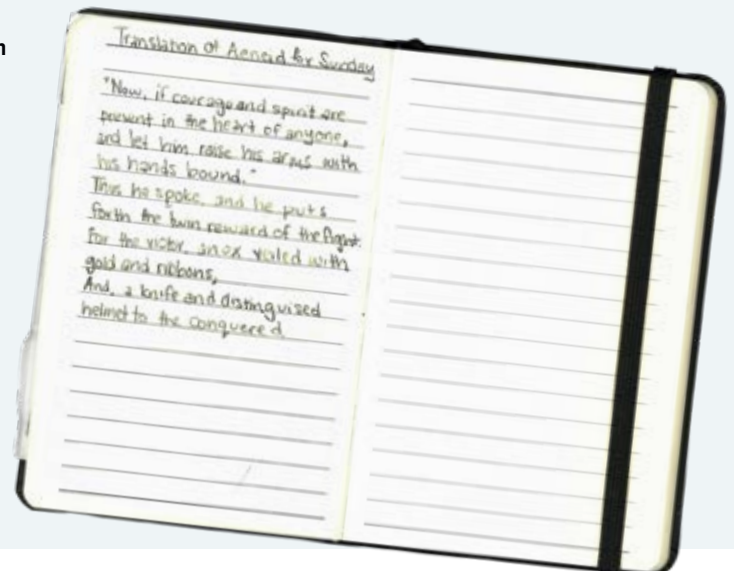 n
Translation of Aeneid for Sunday
"Now, if courage and spirit are
present in the heart of anyone,
and let him raise his arms with
his hands bound."
Thus he spoke, and he puts
forth the twin reward of the fight.
For the victor, an ox veiled with
gold and ribbons,
And, a knife and distinguised
helmet to the conquered.